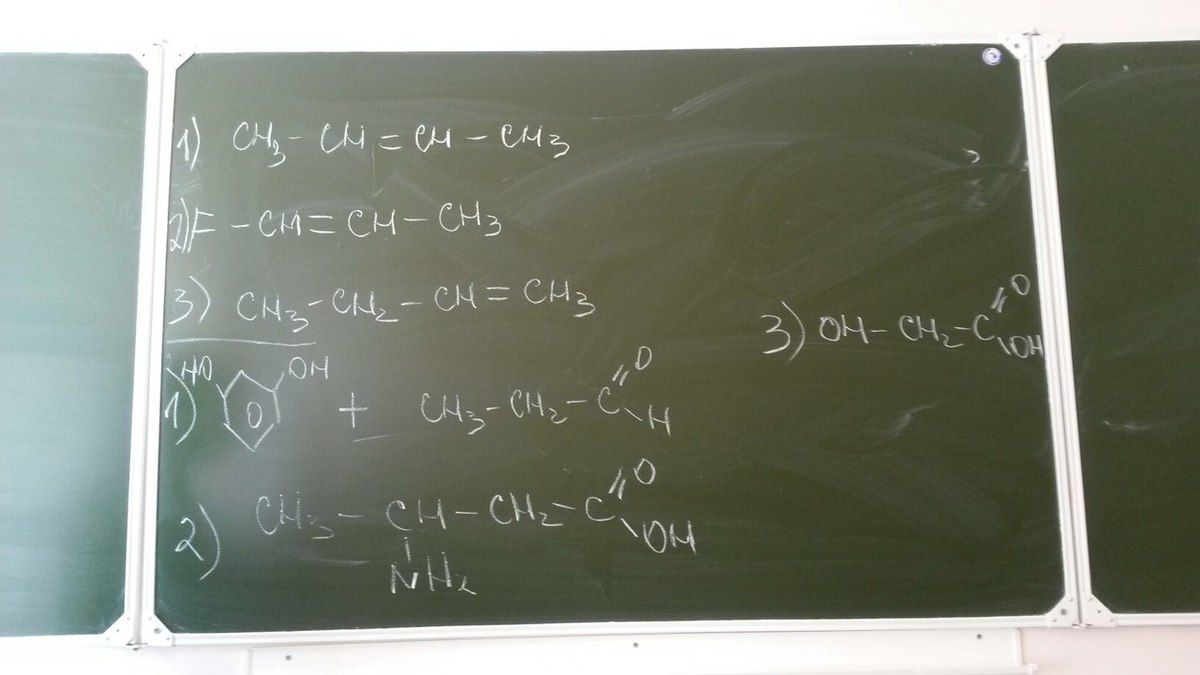 1) CH₃ – CH = CH – CH₃
2) F – CH = CH – CH₃
3) CH₃ – CH₂ – CH = CH₃
1) HO OH + CH₃ – CH₂ – C =O \H
2) CH₃ – CH – CH₂ – C =O \OH
NH₂
3) OH – CH₂ – C =O \OH